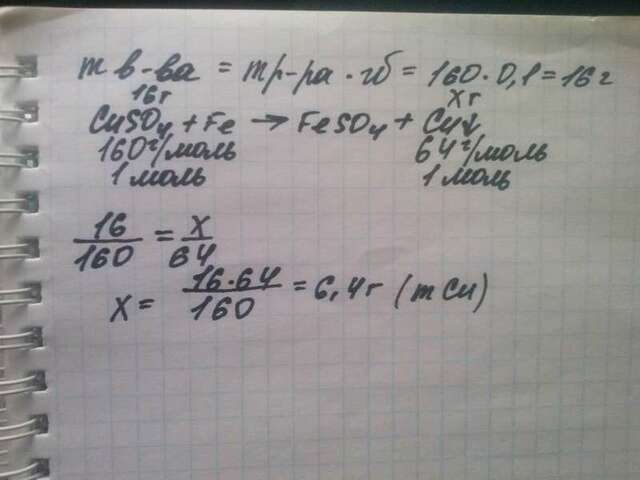 m в-ва = m р-ра · ω = 160 · 0,1 = 16 г
16г xг
CuSO4 + Fe → FeSO4 + Cu↓
160г/моль 64г/моль
1 моль 1 моль
16/160 = x/64
x = 16·64/160 = 6,4г (m Cu)